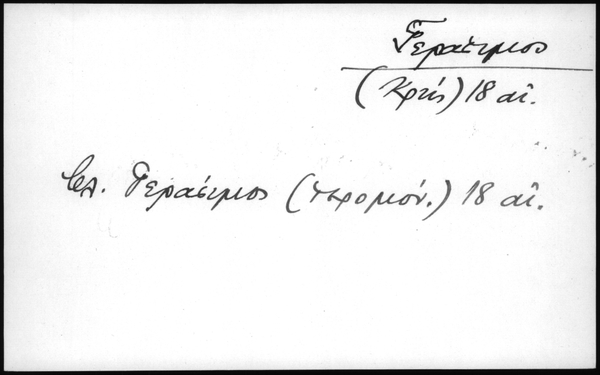 Γεράσιμος
(Κρής) 18 αἰ.
βλ. Γεράσιμος (ἱερομόν.) 18 αἰ.